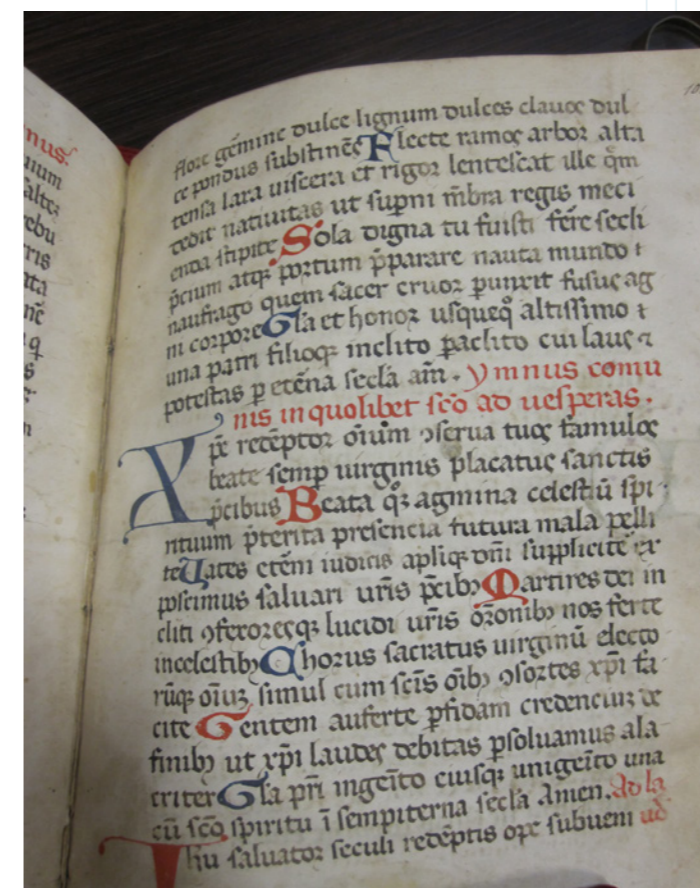 nus.
uium
alte
ebu
rris
ata
nē
q
s
flore gēmine dulce lignum dulces clauos dul
ce pondus substinēs Flecte ramos arbor alta
tensa laxa uiscera et rigor lentescat ille q̄m
dedit natiuitas ut sup̄ni m̄bra regis meci
enda stipite Sola digna tu fuisti fēre secli
p̄cium atq; portum p̄parare nauta mundo ⁊
naufrago quem sacer cruor p̱unxit fusus ag
ni corpore Gl̄a et honor usqueq̊ altissimo ⁊
una patri filioq; inclito p̱aclito cui laus ⁊
potestas p̱ etēna secl̄a am̄. Ymnus comu
nis in quolibet sc̄o ad uesperas.
Xp̄e recēptor oīum ꝯserua tuos famulos
beate semp̱ uirginis placatus sanctis
p̄cibus Beata q̊z agmina celestiū spi
rituum p̄terita presencia futura mala pelli
te Uates etēm iudicis apliq; dn̄i suppliciter ex
poscimus saluari ur̄is p̄cibꝫ Martires dei in
cliti ꝯfexoresq; lucidi ur̄is or̄onibꝫ nos ferte
in celestibꝫ Chorus sacratus uirginū electo
rūq; oīuꝫ simul cum sc̄is oībꝫ ꝯsortes xp̄i fa
cite Gentem auferte p̱fidam credenciuꝫ de
finibꝫ ut xp̄i laudes debitas p̱soluamus ala
criter Gl̄a pr̄i ingeīto eiusq; unigeīto una
cū sc̄o spiritu ī sempiterna secl̄a Amen. Ad la
Ihu saluator seculi redēptis ope subueni ud̄